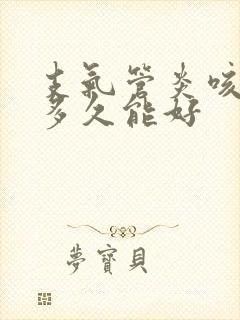 支氣管炎咳
多久能好
夢寶貝